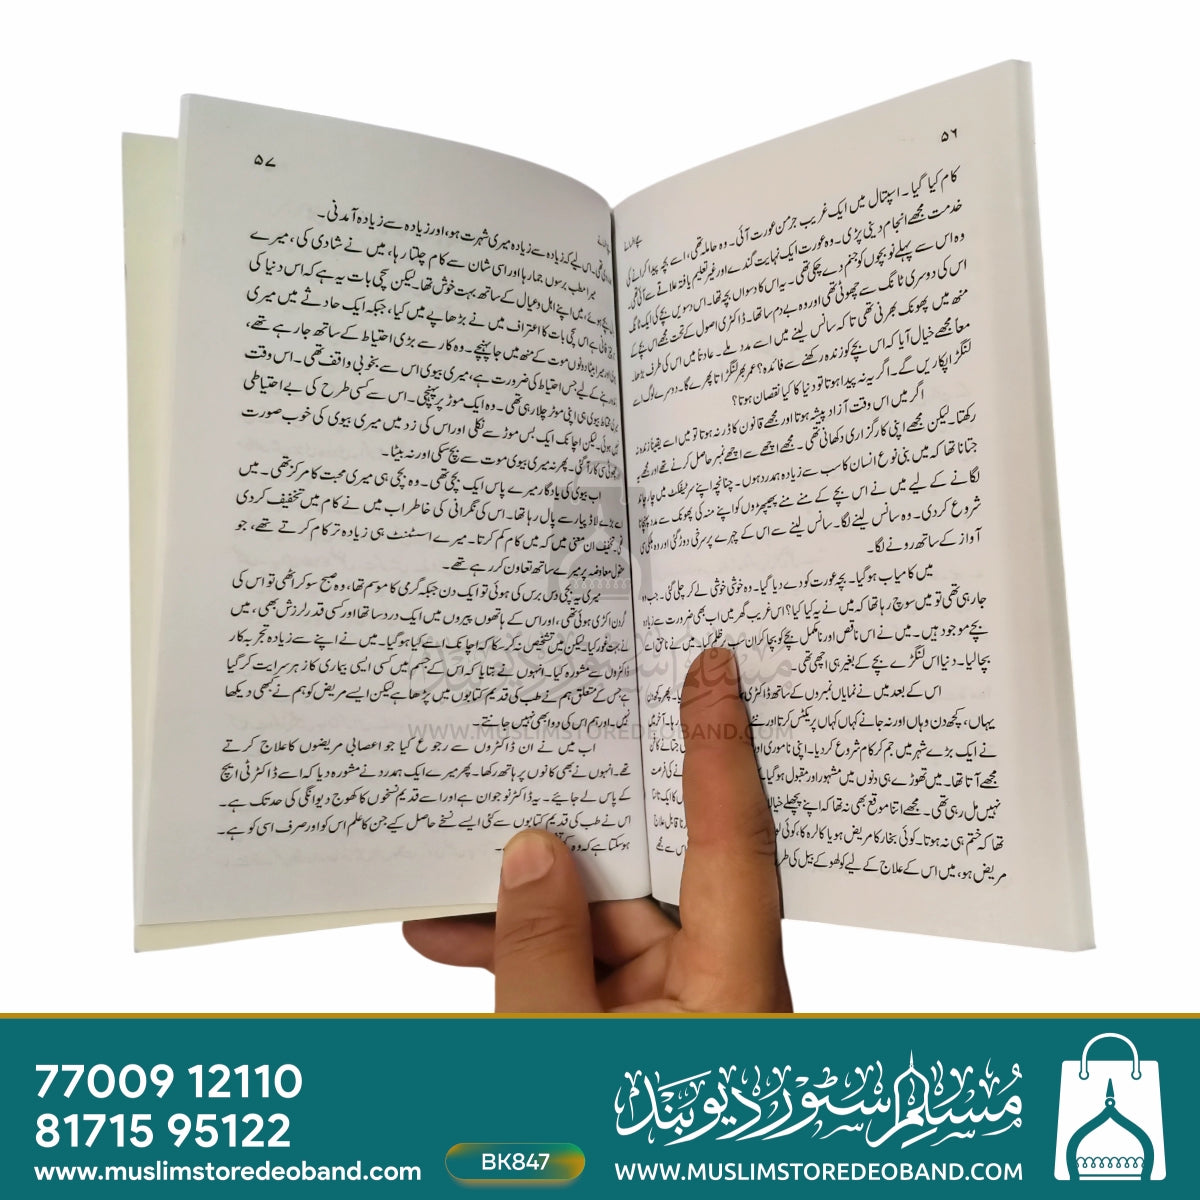 ۵۶
کام کیا گیا۔ اسپتال میں ایک غریب جرمن عورت آئی۔ وہ حاملہ تھی، اسے بچہ پیدا کرانے کی
خدمت مجھے انجام دینی پڑی۔ وہ عورت ایک نہایت گندے اور غیر تعلیم یافتہ علاقے سے آئی تھی۔
وہ اس سے پہلے نو بچوں کو جنم دے چکی تھی۔ یہ اس کا دسواں بچہ تھا۔ اس دسویں بچے کی ایک ٹانگ
اس کی دوسری ٹانگ سے چھوٹی تھی اور وہ بے دم سا تھا۔ ڈاکٹری اصول کے تحت مجھے اس بچے کے
منھ میں پھونک بھرنی تھی تاکہ سانس لینے میں اسے مدد ملے۔ عادتاً میں اس کی طرف بڑھا۔
معاً مجھے خیال آیا کہ اس بچے کو زندہ رکھنے سے فائدہ؟ عمر بھر لنگڑاتا پھرے گا۔ دوسرے لوگ اسے
لنگڑا پکاریں گے۔ اگر یہ نہ پیدا ہوتا تو دنیا کا کیا نقصان ہوتا؟
اگر میں اس وقت آزاد پیشہ ہوتا اور مجھے قانون کا ڈر نہ ہوتا تو میں اسے یقیناً زندہ نہ
رکھتا۔ لیکن مجھے اپنی کارگزاری دکھانی تھی۔ مجھے اچھے سے اچھے نمبر حاصل کرنے تھے اور مجھے یہ
جتانا تھا کہ میں بنی نوع انسان کا سب سے زیادہ ہمدرد ہوں۔ چنانچہ اپنے سرٹیفکٹ میں چار چاند
لگانے کے لیے میں نے اس بچے کے منے منے پھیپھڑوں کو اپنے منہ کی پھونک سے مدد پہنچانا
شروع کردی۔ وہ سانس لینے لگا۔ سانس لینے سے اس کے چہرے پر سرخی دوڑ گئی اور وہ ہلکی سی
آواز کے ساتھ رونے لگا۔
میں کامیاب ہوگیا۔ بچہ عورت کو دے دیا گیا۔ وہ خوشی خوشی لے کر چلی گئی۔ جب وہ
جارہی تھی تو میں سوچ رہا تھا کہ میں نے یہ کیا کیا؟ اس غریب گھر میں اب بھی ضرورت سے زیادہ
بچے موجود ہیں۔ میں نے اس ناقص اور نامکمل بچے کو بچا کر ان سب پر ظلم کیا۔ میں نے ناحق اسے
بچالیا۔ دنیا اس لنگڑے بچے کے بغیر ہی اچھی تھی۔
اس کے بعد میں نے نمایاں نمبروں کے ساتھ ڈاکٹری
یہاں، کچھ دن وہاں اور نہ جانے کہاں کہاں پریکٹس کرتا اور
نے ایک بڑے شہر میں جم کر کام شروع کردیا۔ اپنی ناموری اور
مجھے آتا تھا۔ میں تھوڑے ہی دنوں میں مشہور اور مقبول ہوگیا
نہیں مل رہی تھی۔ مجھے اتنا موقع بھی نہ تھا کہ اپنے پچھلے
تھا کہ ختم ہی نہ ہوتا۔ کوئی بخار کا مریض ہو یا کالرہ کا، کوئی
مریض ہو، میں اس کے علاج کے لیے کولھو کے بیل کی
۵۷
اس لیے کہ زیادہ سے زیادہ میری شہرت ہو، اور زیادہ سے زیادہ آمدنی۔
میرا مطب برسوں جما رہا اور اسی شان سے کام چلتا رہا، میں نے شادی کی، میرے
ہوئے، میں اپنے اہل و عیال کے ساتھ بہت خوش تھا۔ لیکن سچی بات یہ ہے کہ اس دنیا کی
فانی ہے اس سچی بات کا اعتراف میں نے بڑھاپے میں کیا، جبکہ ایک حادثے میں میری
اور میرا بیٹا دونوں موت کے منھ میں جا پہنچے۔ وہ کار سے بڑی احتیاط کے ساتھ جارہے تھے،
کے لیے جس احتیاط کی ضرورت ہے، میری بیوی اس سے بخوبی واقف تھی۔ اس وقت
بیوی ہی اپنی موٹر چلا رہی تھی۔ وہ ایک موڑ پر پہنچی۔ اس سے کسی طرح کی بے احتیاطی
ہوئی۔ لیکن اچانک ایک بس موڑ سے نکلی اور اس کی زد میں میری بیوی کی خوب صورت
سی کار آگئی۔ پھر نہ میری بیوی موت سے بچ سکی اور نہ بیٹا۔
اب بیوی کی یادگار میرے پاس ایک بچی تھی۔ وہ بچی ہی میری محبت کا مرکز تھی۔ میں
اسے بڑے لاڈ پیار سے پال رہا تھا۔ اس کی نگرانی کی خاطر اب میں نے کام میں تخفیف کردی
تخفیف ان معنی میں کہ میں کام کم کرتا۔ میرے اسسٹنٹ ہی زیادہ تر کام کرتے تھے، جو
معقول معاوضہ پر میرے ساتھ تعاون کر رہے تھے۔
میری یہ بچی دس برس کی ہوئی تو ایک دن جبکہ گرمی کا موسم تھا، وہ صبح سو کر اٹھی تو اس کی
گردن اکڑی ہوئی تھی، اور اس کے ہاتھوں پیروں میں درد تھا اور کسی قدر لرزش بھی، میں
نے بہت غور کیا۔ لیکن میں تشخیص نہ کرسکا کہ اچانک اسے کیا ہوگیا۔ میں نے اپنے سے زیادہ تجربہ کار
ڈاکٹروں سے مشورہ کیا۔ انہوں نے بتایا کہ اس کے جسم میں کسی ایسی بیماری کا زہر سرایت کرگیا
ہے جس کے متعلق ہم نے طب کی قدیم کتابوں میں پڑھا ہے لیکن ایسے مریض کو ہم نے کبھی دیکھا
نہیں۔ اور ہم اس کی دوا بھی نہیں جانتے۔
اب میں نے ان ڈاکٹروں سے رجوع کیا جو اعصابی مریضوں کا علاج کرتے
تھے۔ انہوں نے بھی کانوں پر ہاتھ رکھا۔ پھر میرے ایک ہمدرد نے مشورہ دیا کہ اسے ڈاکٹر ٹی ایچ
کے پاس لے جائیے۔ یہ ڈاکٹر نوجوان ہے اور اسے قدیم نسخوں کا کھوج دیوانگی کی حد تک ہے۔
اس نے طب کی قدیم کتابوں سے کئی ایسے نسخے حاصل کیے جن کا علم اس کو اور صرف اسی کو ہے۔
ہوسکتا ہے کہ وہ
مسلم سٹور دیوبند
WWW.MUSLIMSTOREDEOBAND.COM
77009 12110
81715 95122
www.muslimstoredeoband.com
BK847
مسلم سٹور دیوبند
WWW.MUSLIMSTOREDEOBAND.COM